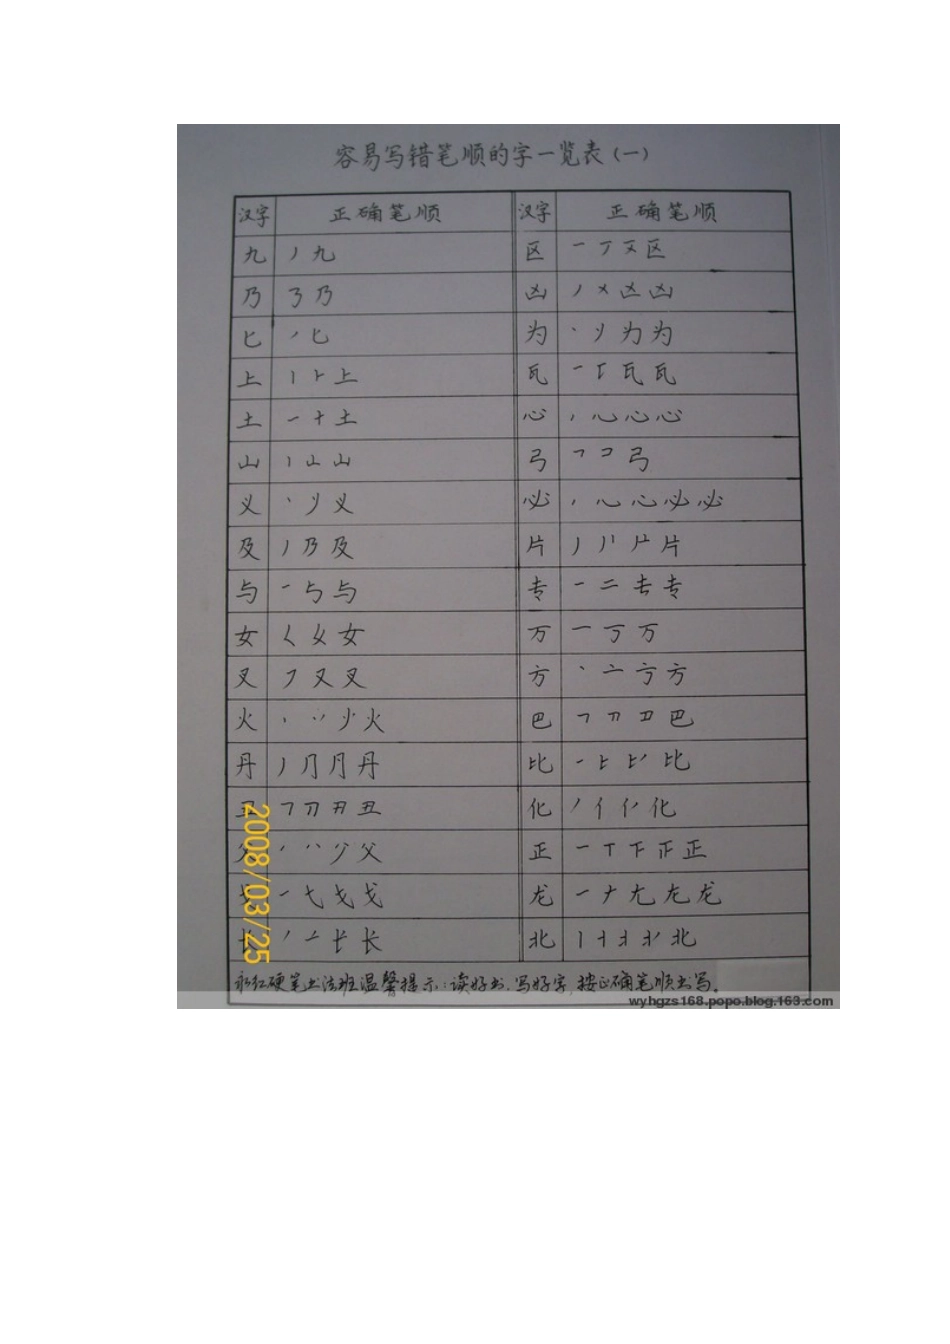 容易写错笔顺的字一览表（一）
汉字 正确笔顺 汉字 正确笔顺
九 丿 九 区 一 丆 区
乃 乃 凶 丿 㐅 凶
匕 丿 匕 为 丶 为 为
上 丨 ⺊ 上 瓦 一 瓦 瓦
土 一 十 土 心 丶 心 心 心
山 丨 山 山 弓 𠃍 コ 弓
义 丶 义 必 丶 心 心 必 必
及 丿 乃 及 片 丿 片
与 一 与 与 专 一 二 专 专
女 𡿨 女 女 万 一 万 万
叉 フ 又 叉 方 丶 亠 方 方
火 丶 丷 火 巴 𠃍 巴
丹 丿 冂 月 丹 比 一 比
丑 𠃍 刀 丑 化 丿 亻 化
父 丿 八 父 正 一 丅 下 正 正
戈 一 七 戈 戈 龙 一 𠂇 尢 龙 龙
长 丿 长 长 北 丨 北
永红硬笔书法班温馨提示：读好书，写好字，按正确笔顺书写。
2008/03/25
wyhgzs168.popo.blog.163.com